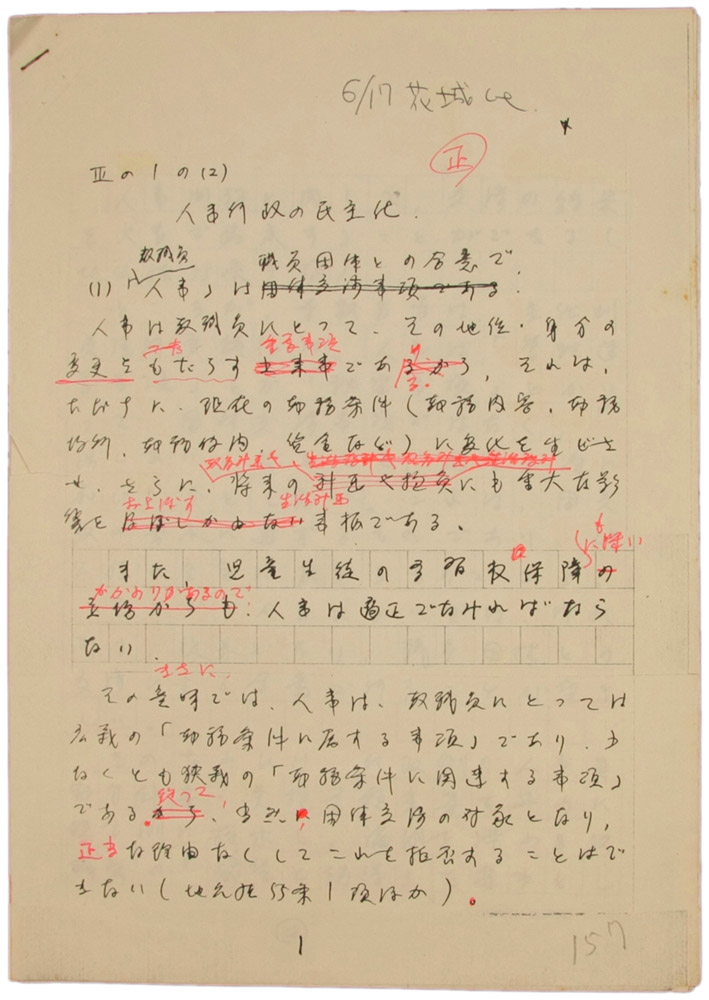 6/17 花城
正
Ⅲの1の(2)
人事行政の民主化.
教職員 職員団体との合意で
(1)「人事」は団体交渉事項である.
人事は教職員にとって、その地位・身分の
重要事項
変更をもたらす出来事である から, それは,
ただちに、現在の勤務条件(勤務内容、勤務
場所、勤務体内、賃金など)に変化を生じさ
せ、さらに、将来の 計画や にも重大な影
およぼす 生活計画
響を 事柄である。
また, 児童生徒の学習权保障の
かかわりがあるので
立場からも: 人事は適正でなければなら
ない.
まさに.
その意味では、人事は、教職員にとっては
広義の「勤務条件に属する事項」であり、少
なくとも狭義の「勤務条件に関連する事項」
従って
である から、当然 団体交渉の対象となり,
正当な理由なくしてこれを拒否することはで
きない(地公法55条1項ほか)。
1
157